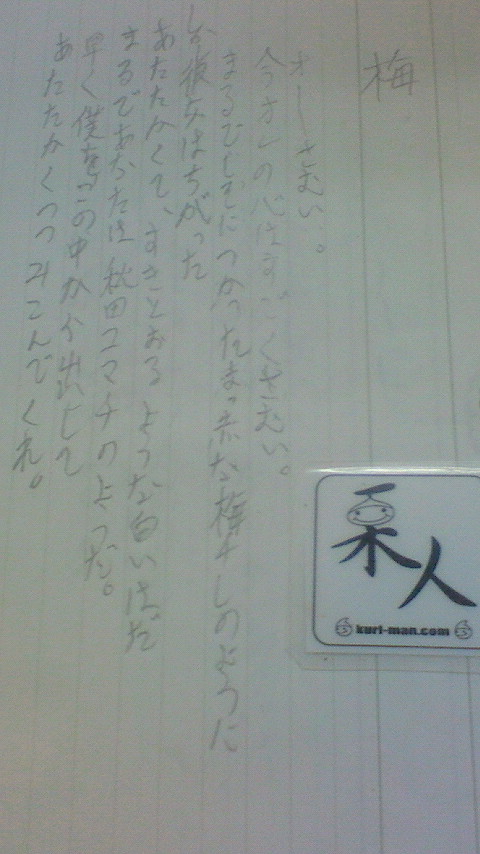 梅
オーさむい。
今オレの心はすごくさむい。
まるでしそにつかったまっ赤な梅干しのように
が彼女はちがった
あたたかくて、すきとおるような白いはだ
まるであなたは秋田コマチのようだ。
早く僕をつの中から出して
あたたかくつつみこんでくれ。
栗人
kuri-man.com